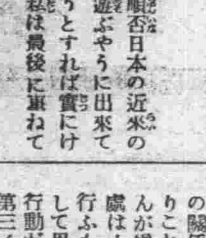 順否日本の近來の
遊ぶやうに出來て
うとすれば實にけ
私は最後に重ねて
の關
りこと
んが
處は
行ふ
して
行動
第三